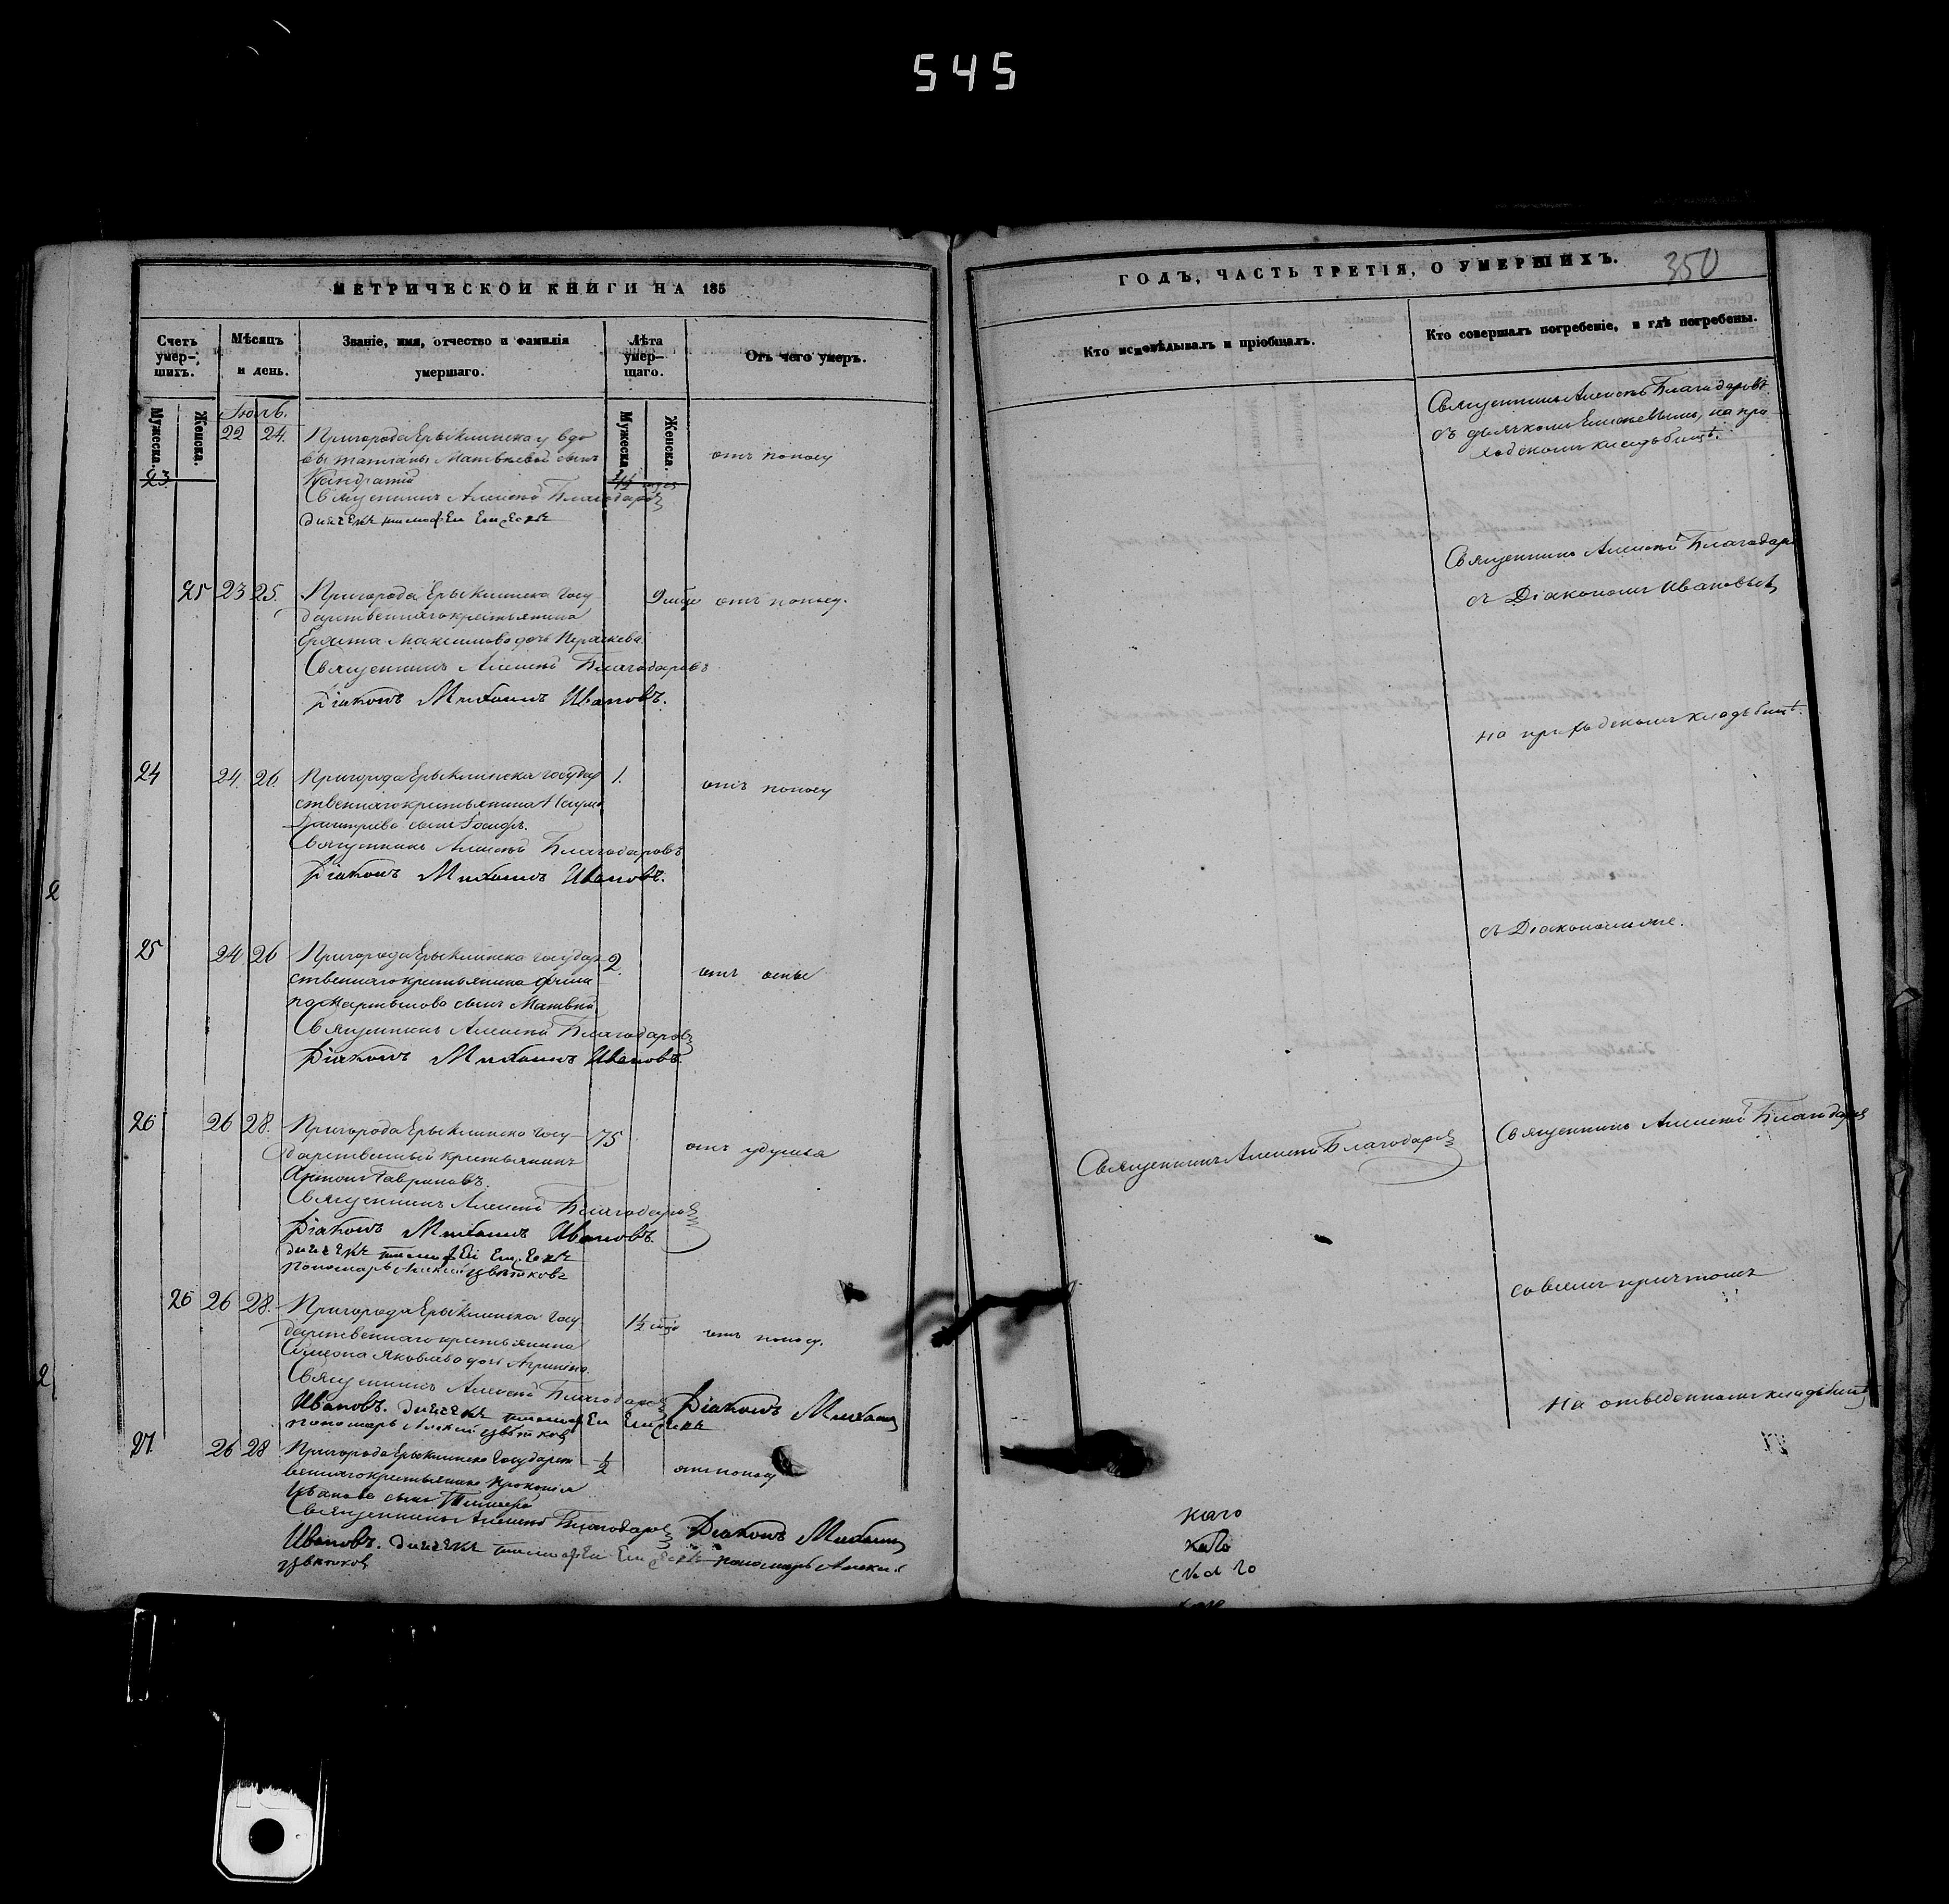 545
МЕТРИЧЕСКОЙ КНИГИ НА 185
Счетъ умер-шихъ.
Мѣсяцъ и день.
Званіе, имя, отчество и фамилія умершаго.
Лѣта умер-щаго.
Отъ чего умеръ.
Мужеска.
Женска.
Мужеска.
Женска.
Іюль.
23
22 24.
Пригорода Ерыклинска у вдо
вы Татіаны Матвѣевой сынъ
Кондратій
отъ поносу
Священникъ Алексѣй Благодаровъ
25 23 25.
Пригорода Ерыклинска госу
дарственнаго крестьянина
Максимова дочь Параскева.
9 отъ поносу.
Священникъ Алексѣй Благодаровъ
Діаконъ Михаилъ Ивановъ.
24 24. 26.
Пригорода Ерыклинска государ
ственнаго крестьянина Наума
Дмитріева сынъ Іосифъ.
1. отъ поносу
Священникъ Алексѣй Благодаровъ
Діаконъ Михаилъ Ивановъ.
25 24 26
Пригорода Ерыклинска государ
ственнаго крестьянина Фили
па Мартынова сынъ Матвѣй
2. отъ оспы
Священникъ Алексѣй Благодаровъ
Діаконъ Михаилъ Ивановъ.
26 26 28.
Пригорода Ерыклинска госу
дарственный крестьянинъ
Антонъ Гавриловъ.
75 отъ удушья
Священникъ Алексѣй Благодаровъ
Діаконъ Михаилъ Ивановъ.
дьячекъ Тимофей
пономарь Алексѣй Цвѣтковъ
26 26 28.
Пригорода Ерыклинска госу
дарственнаго крестьянина
Симеона Яковлева дочь
1½ отъ поносу.
Священникъ Алексѣй Благодаровъ Діаконъ Михаилъ
Ивановъ. дьячекъ Тимофей
пономарь Алексѣй Цвѣтковъ
27 26 28
Пригорода Ерыклинска государст
веннаго крестьянина Прокопія
Иванова сынъ
½ отъ поносу
Священникъ Алексѣй Благодаровъ Діаконъ Михаилъ
Ивановъ. дьячекъ Тимофей пономарь Алексѣй
Цвѣтковъ
ГОДЪ, ЧАСТЬ ТРЕТІЯ, О УМЕРШИХЪ.
350
Кто исповѣдывалъ и пріобщалъ.
Кто совершалъ погребеніе, и гдѣ погребены.
Священникъ Алексѣй Благодаровъ
съ дьячкомъ на при
ходскомъ кладбищѣ.
Священникъ Алексѣй Благодаровъ
съ Діакономъ Ивановымъ
на приходскомъ кладбищѣ.
съ Діакономъ же.
Священникъ Алексѣй Благодаровъ
Священникъ Алексѣй Благодаровъ
со всемъ причтомъ
На отведенномъ кладбищѣ
каго